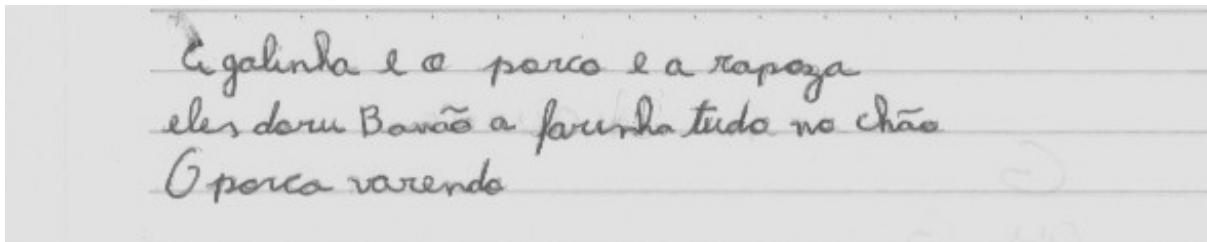 A galinha e o porco e a rapoza
eles doru Bavão a farinha tudo no chão
O porco varendo